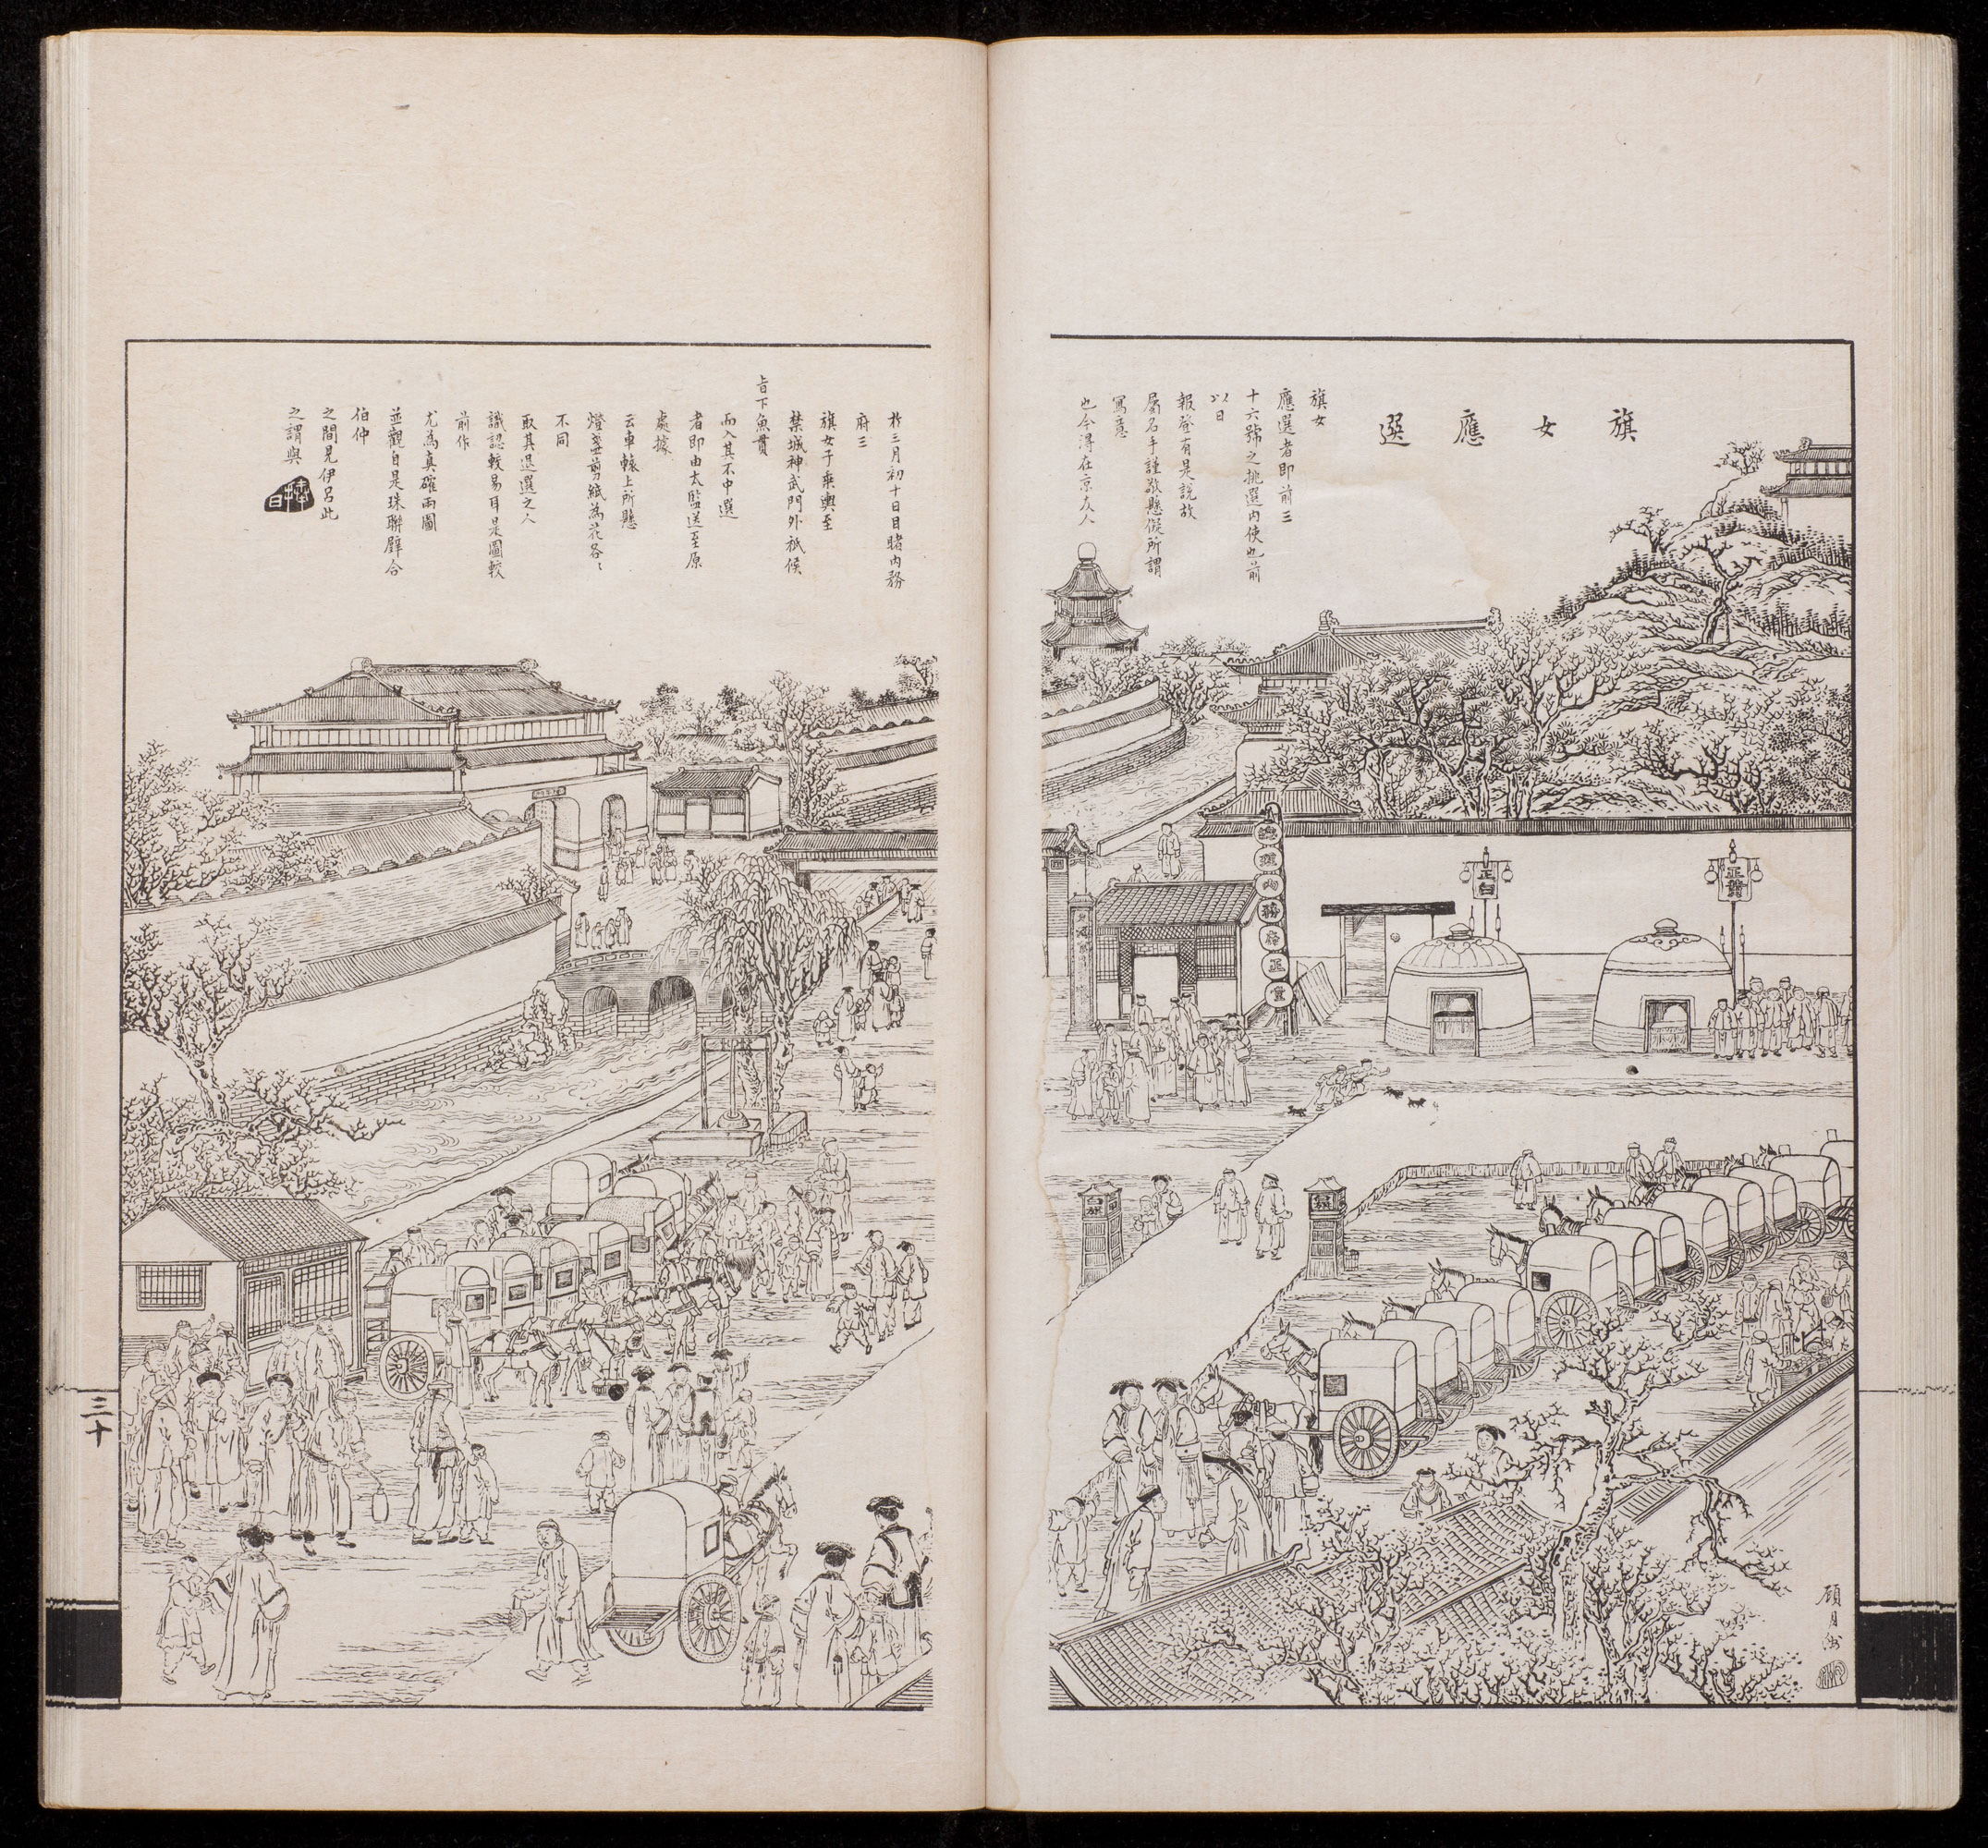 旗女應選
旗女
應選者即前三
十六號之挑選內使也前
以日
報登有是說故
屬名手謹敬懸儗所謂
寫意
也今淂在京友人
於三月初十日目睹內務
府三
旗女子乘輿至
禁城神武門外祇候
旨下魚貫
而入其不中選
者即由太監送至原
處據
云車轅上所懸
燈盞剪紙為花各〻
不同
取其退選之人
識認較易耳是圖較
前作
尤為真確兩圖
並觀自是珠聯璧合
伯仲
之間見伊呂此
之謂與
正白
正黃
內務府正黃
顧月洲
三十